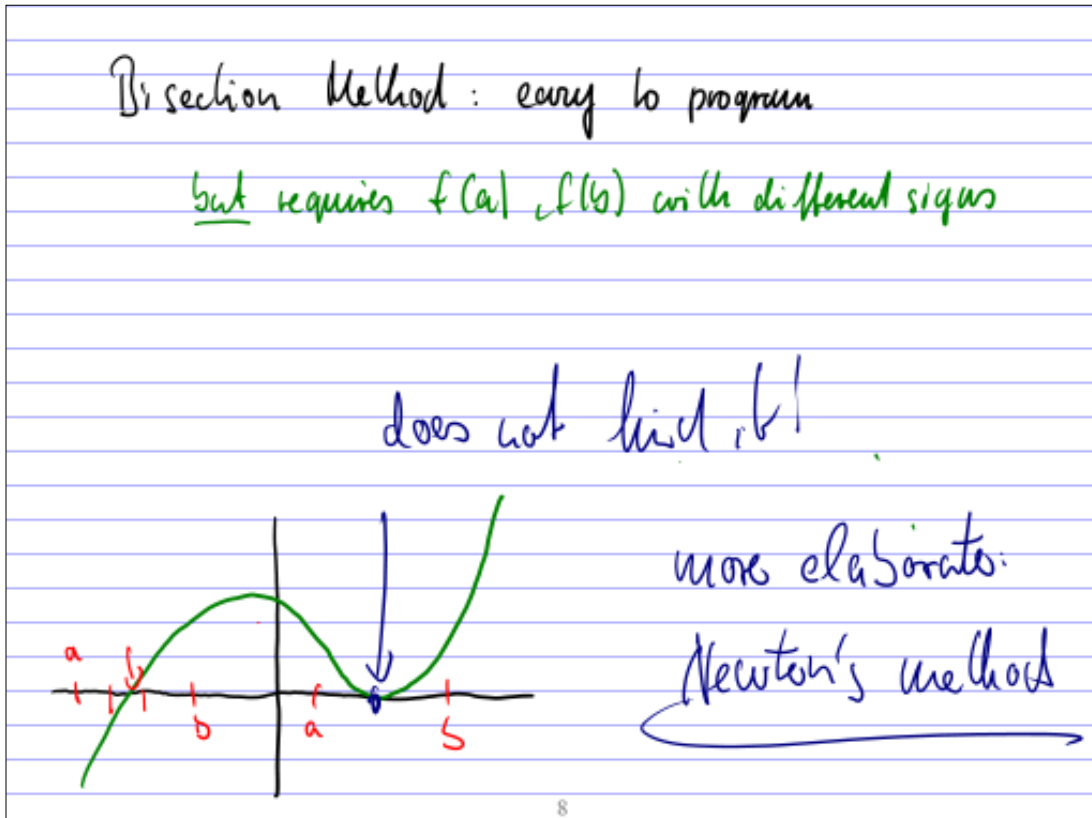 Bisection Method: easy to program
but requires f(a), f(b) with different signs
does not find it!
more elaborate:
Newton's method
a
b
a
b
8